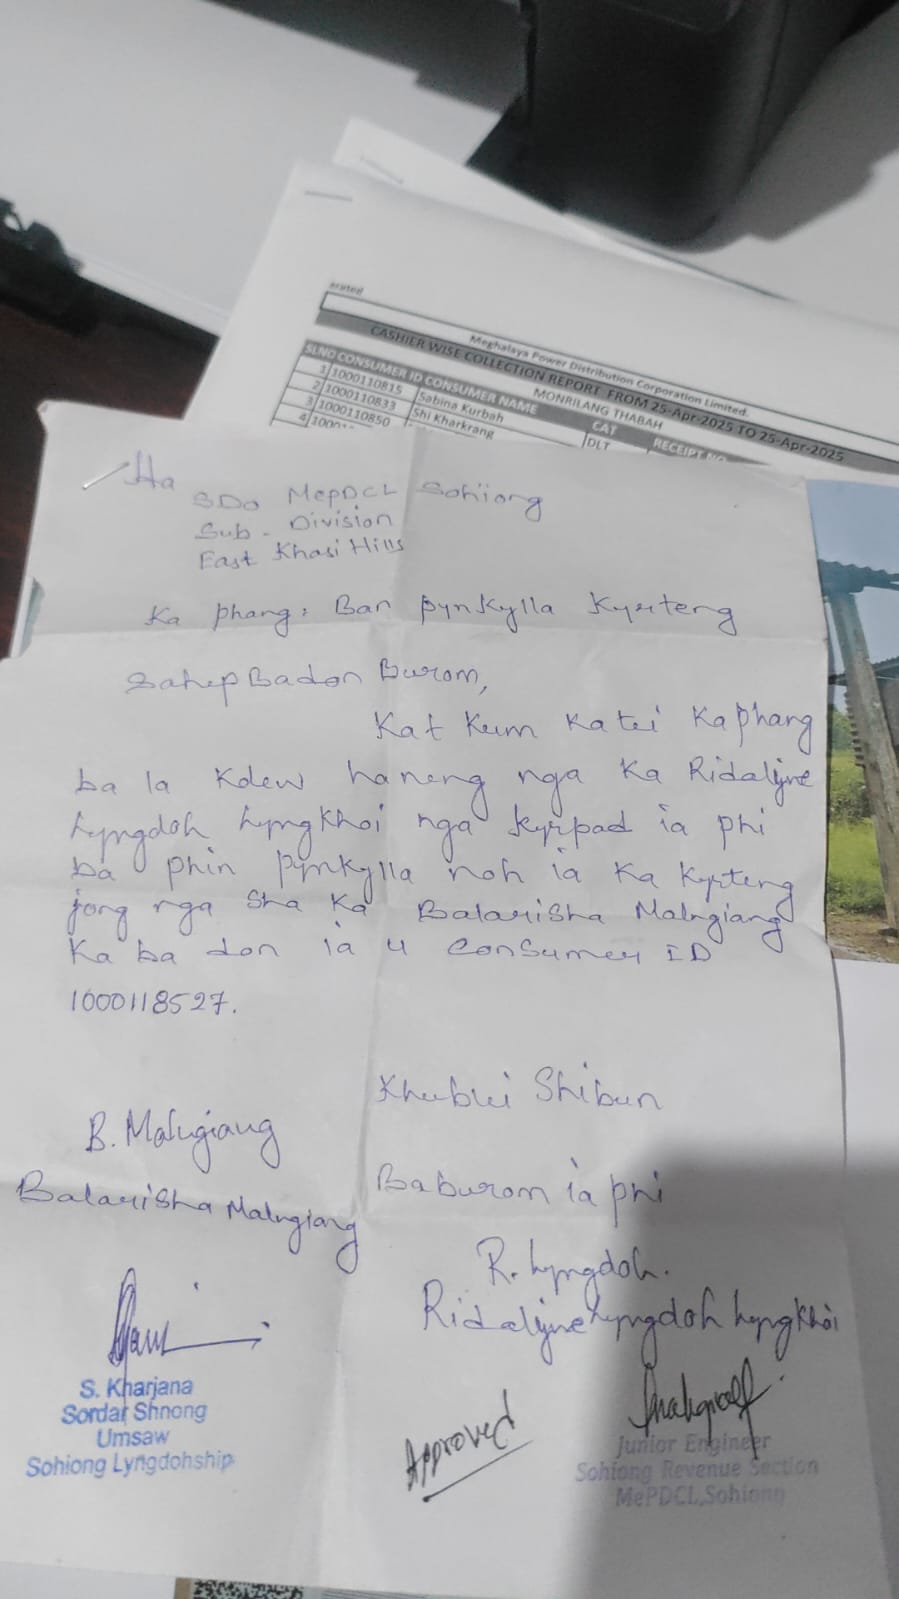 erated
Meghalaya Power Distribution Corporation Limited.
CASHIER WISE COLLECTION REPORT FROM 25-Apr-2025 TO 25-Apr-2025
MONRILANG THABAH
SLNO CONSUMER ID CONSUMER NAME CAT RECEIPT NO
1 1000110815 Sabina Kurbah DLT
2 1000110833 Shi Kharkrang
3 1000110850
4
Ha
SDO MePDCL Sohiong
Sub - Division
East Khasi Hills
Ka phang: Ban pynkylla Kyrteng
Sahep Badon Burom,
Kat kum katei kaphang
ba la kdew haneng nga ka Ridalijne
Lyngdoh Lyngkhoi nga kyrpad ia phi
ba phin pynkylla noh ia ka kyrteng
jong nga sha ka Balarisha Malngiang
ka ba don ia u consumer ID
1000118527.
Khublei Shibun
B. Malngiang
Balarisha Malngiang
Baburom ia phi
R. Lyngdoh.
Ridalijne Lyngdoh Lyngkhoi
S. Kharjana
Sordar Shnong
Umsaw
Sohiong Lyngdohship
Approved
Junior Engineer
Sohiong Revenue Section
MePDCL, Sohiong